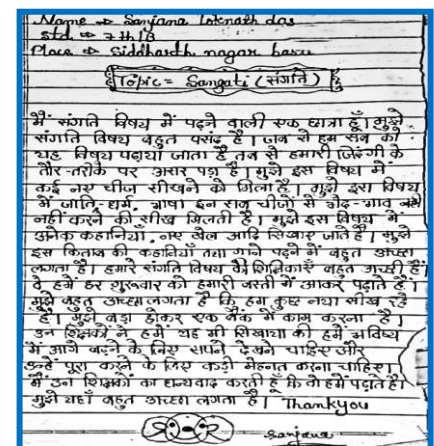 Name ⇒ Sanjana loknath das
std ⇒ 7th B
Place ⇒ Siddharth nagar
Topic = Sangati (संगति)
मैं संगति विषय में पढ़ने वाली एक छात्रा हूँ। मुझे
संगति विषय बहुत पसंद है। जब से हम सब को
यह विषय पढ़ाया जाता है तब से हमारी जिंदगी के
तौर-तरीके पर असर पड़ा है। मुझे इस विषय में
कई नए चीज सीखने को मिला है। मुझे इस विषय
में जाति-धर्म, भाषा इन सब चीजों से भेद-भाव
नहीं करने की सीख मिलती है। मुझे इस विषय में
अनेक कहानियाँ, नए खेल आदि सिखाए जाते है। मुझे
इस किताब की कहानियाँ तथा गाने पढ़ने में बहुत अच्छा
लगता है। हमारे संगति विषय की शिक्षिकाएँ बहुत अच्छी हैं।
वे हमें हर शुक्रवार को हमारी बस्ती में आकर पढ़ाते हैं।
मुझे बहुत अच्छा लगता है कि हम कुछ नया सीख रहे
हैं। मुझे बड़ा होकर एक बैंक में काम करना है।
उन शिक्षकों ने हमें यह भी सिखाया की हमे भविष्य
में आगे बढ़ने के लिए सपने देखने चाहिए और
उन्हें पूरा करने के लिए कड़ी मेहनत करना चाहिए।
मैं उन शिक्षकों का धन्यवाद करती हूँ कि वो हमें पढ़ाते हैं।
मुझे यहाँ बहुत अच्छा लगता है। Thankyou
Sanjana